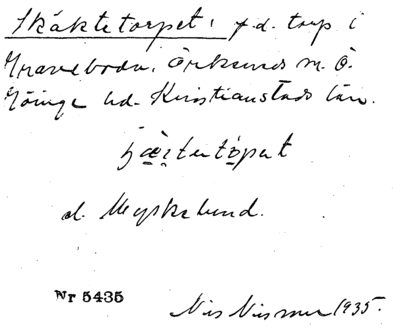 Skäktetorpet, f.d. torp i
Graveboda, Örkeneds sn. Ö.
Göinge hd. Kristianstads län.
d. Myskelund.
Nr 5435
Nils Nilsson 1935.